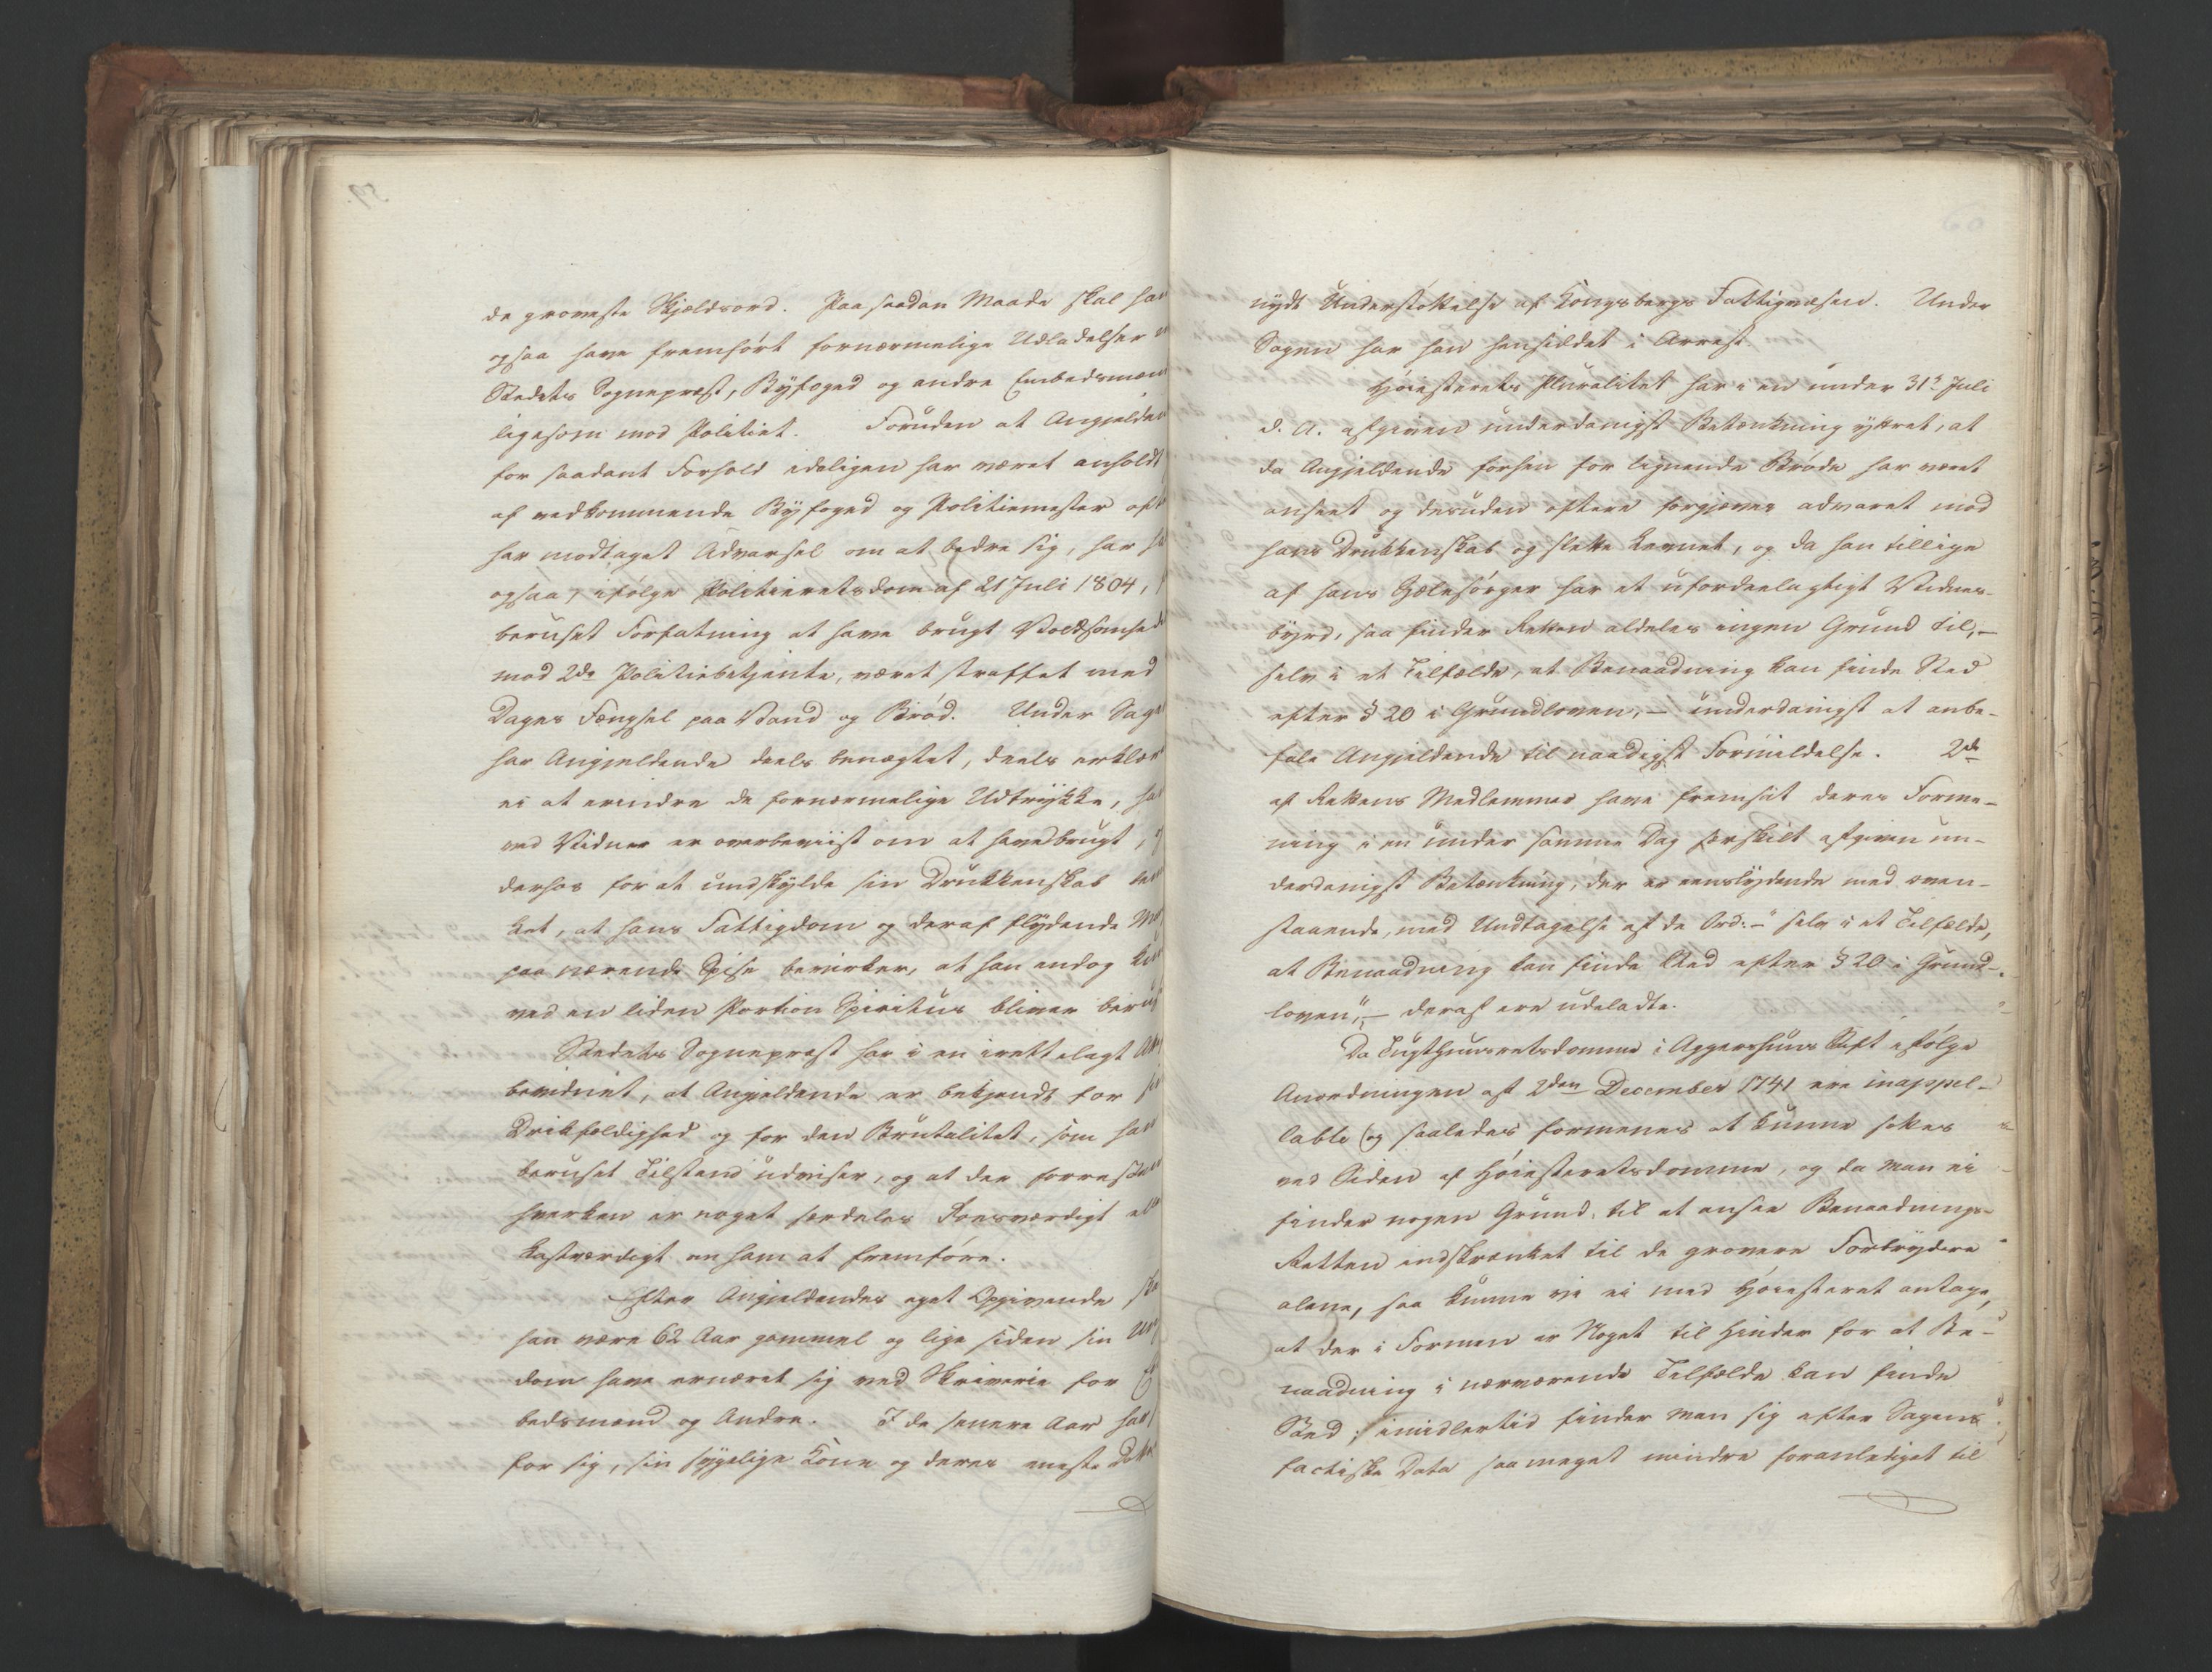 de groveste Skjeldsord. Paa saadan Maade skal han
ogsaa have fremført fornærmelige Udladelser
Stedets Sognepræst, Byfoged og andre Embedsmæn
ligesom mod Politiet. Foruden at Angjelden
for saadant Forhold ideligen har været anholdt
af vedkommende Byfoged og Politiemester
har modtaget Advarsel om at bedre sig, har
ogsaa, ifølge Politieretsdom af 21 Juli 1804,
beruset Forfatning at have brugt Voldsomhed
mod 2de Politiebetjente, været straffet med
Dages Fængsel paa Vand og Brød. Under Sagen
har Angjeldende deels benægtet, deels erklært
ei at erindre de fornærmelige Udtrykke, han
ved Vidner er overbeviist om at have brugt,
derhos for at undskylde sin Drukkenskab
ket, at hans Fattigdom og deraf flydende
paa nærende Spise bevirker, at han endog
ved en liden Portion Spiritus bliver berus
Stedets Sognepræst har i en irettelagt
bevidnet, at Angjeldende er bekjendt for
Drikfældighed og for den Brutalitet, som han
beruset Tilstand udviser, og at der forresten
hverken er noget særdeles Roesværdigt
lastværdigt om ham at fremføre.
Efter Angjeldendes eget Opgivende
han være 62 Aar gammel og lige siden sin
dom have ernæret sig ved Skriverie for
bedsmænd og Andre. I de senere Aar har
for sig, sin sygelige Kone og deres eneste
nydt Understøttelse af Kongsbergs Fattigvæsen. Under
Sagen har han hensiddet i Arrest
Høiesterets Pluralitet har i en under 31te Juli
d. A. afgiven underdanigst Betænkning yttret, at
da Angjeldende forhen for lignende Brøde har været
anseet og desuden oftere forgjæves advaret mod
hans Drukkenskab og slette Levnet, og da han tillige
af hans Sjælesørger har et ufordeelagtigt Vidnes-
byrd, saa finder Retten aldeles ingen Grund til, –
selv i et Tilfælde, at Benaadning kan finde Sted
efter § 20 i Grundloven, – underdanigst at anbe-
fale Angjeldende til naadigst Formildelse. 2de
af Rettens Medlemmer have fremsat deres Forme-
ning i en under samme Dag særskilt afgiven un-
derdanigst Betænkning, der er eenslydende med oven-
staaende, med Undtagelse af de Ord: – "selv i et Tilfælde,
at Benaadning kan finde Sted efter § 20 i Grund-
loven", – deraf ere udeladte.
Da Tugthuusretsdomme i Aggershuus Stift ifølge
Anordningen af 2den December 1741 ere inappel-
lable og saaledes formenes at kunne sættes
ved Siden af Høiesteretsdomme, og da man ei
finder nogen Grund til at ansee Benaadnings-
Retten indskrænket til de grovere Forbrydere
alene, saa kunne vi ei med Høiesteret antage,
at der i Formen er Noget til Hinder for at Be-
naadning i nærværende Tilfælde kan finde
Sted; imidlertid finder man sig efter Sagens
factiske Data saa meget mindre foranlediget til